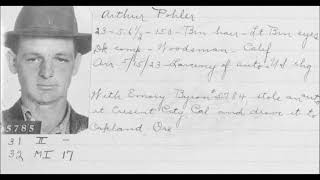 Arthur Pohler
23-5.6½-153-Brn hair-Lt Brn eyes
Dk comp-Woodsman-Calif
Arr 5/15/23-Larceny of auto
With Emory Byron # 5784 stole an auto
at Cresent City Cal and drove it to
Oakland Ore
5785
31 II -
32 MI 17